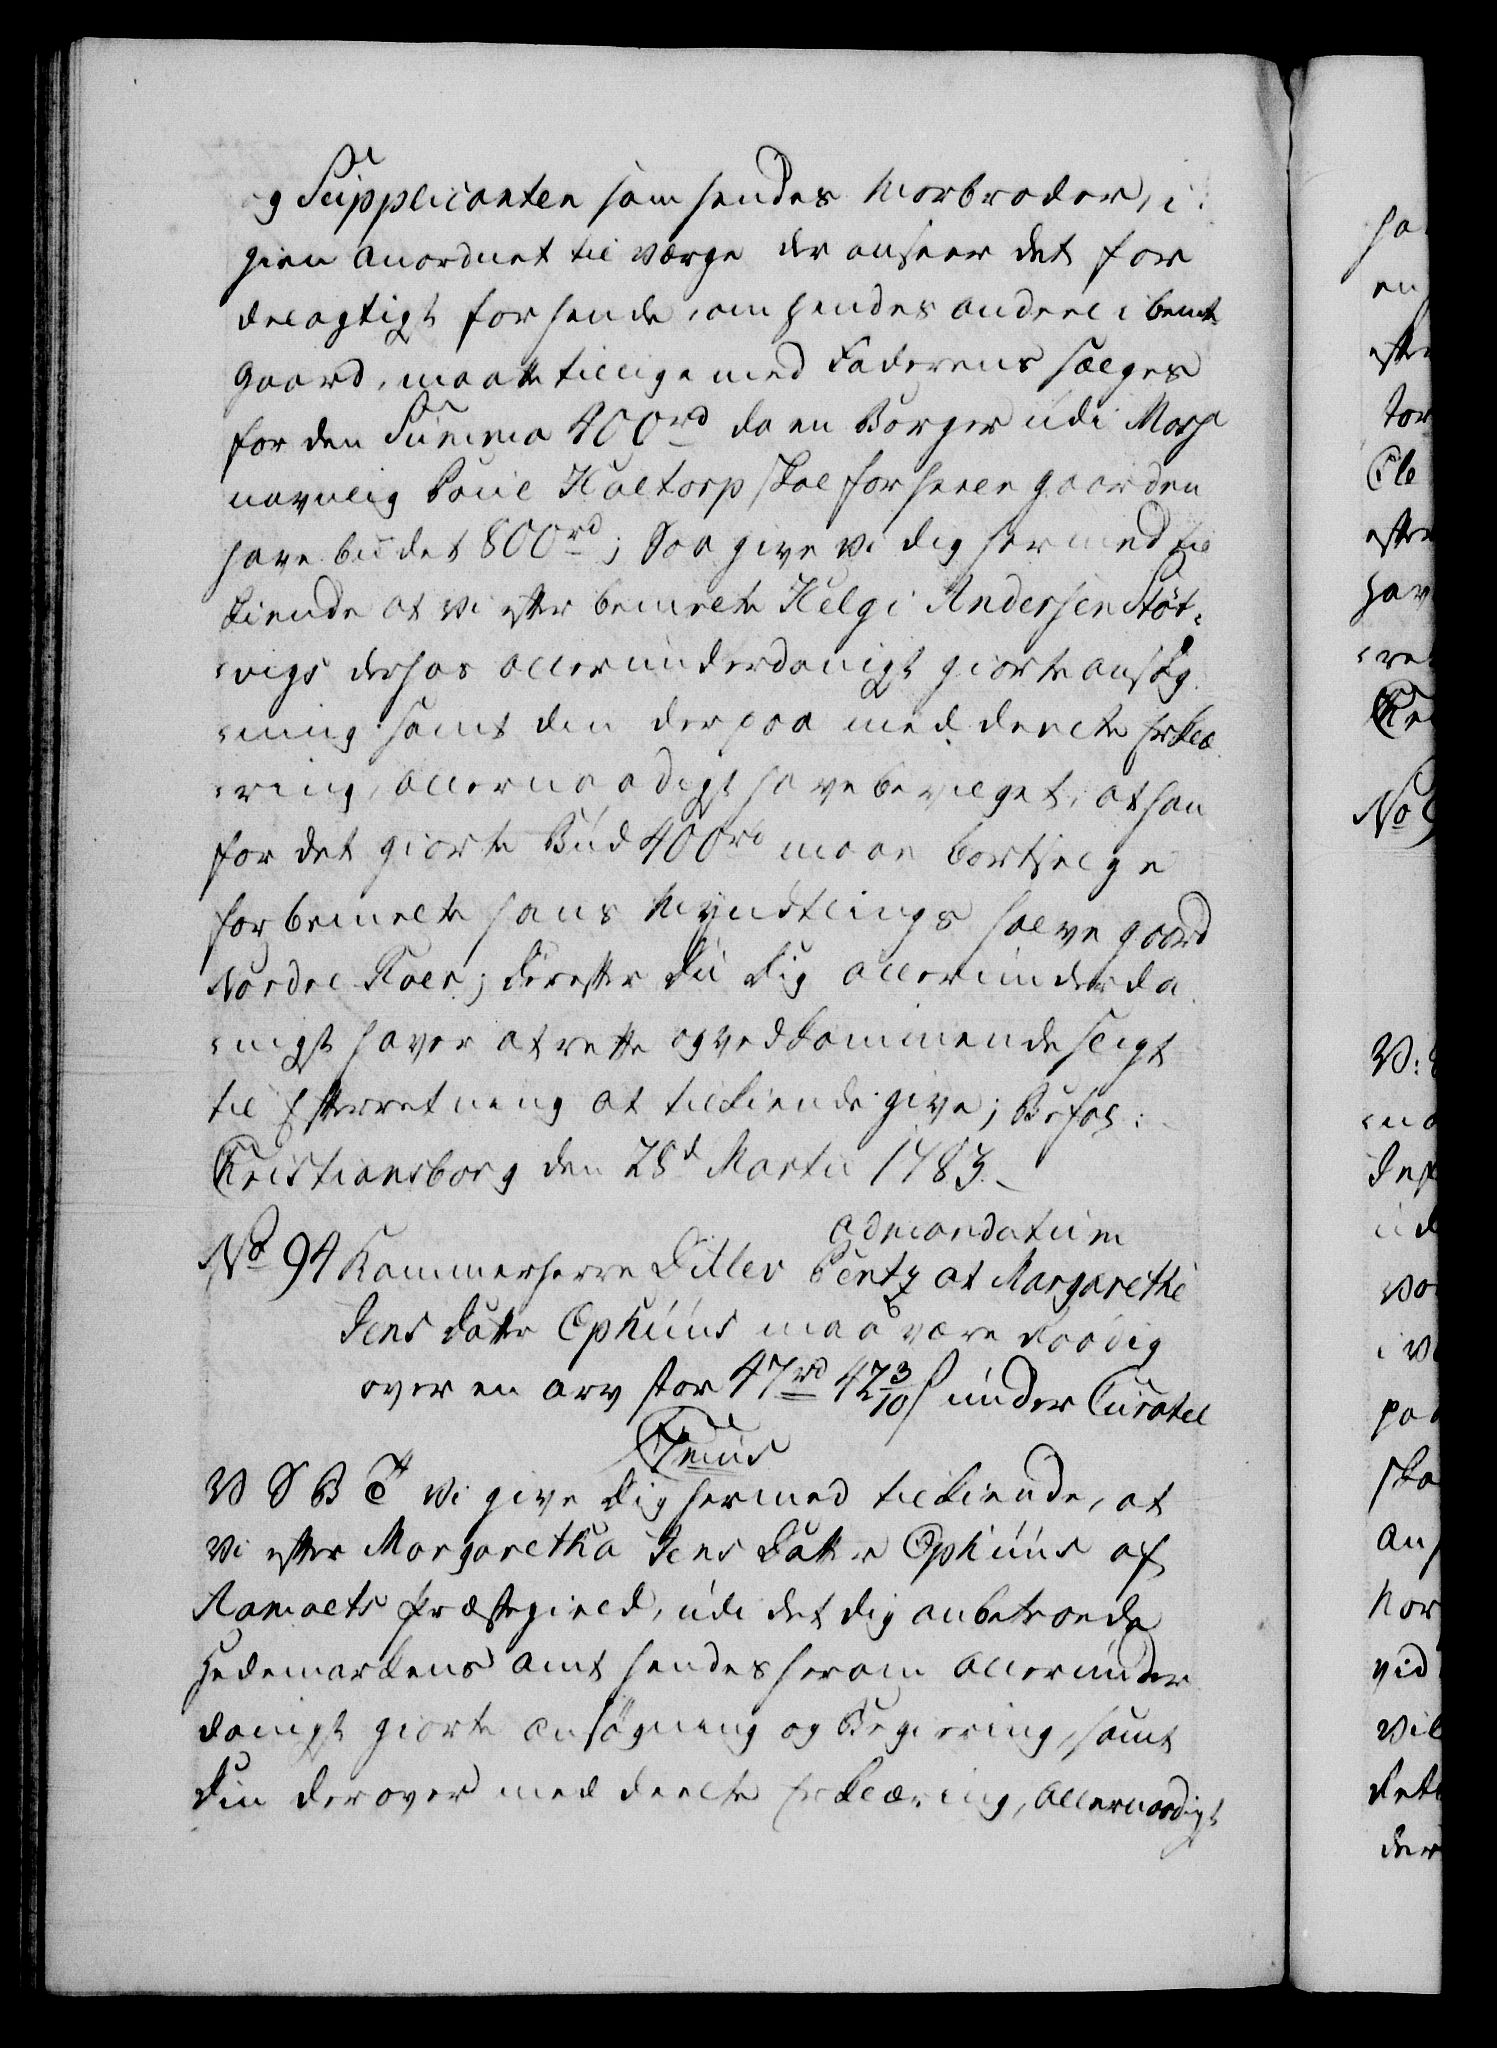 og Supplicanten som hendes Morbroder, i
gien anordnet til værge der anseer det for
delagtigt for hende, om hendes andeel i bemte
Gaard, maatte tillige med Faderens sælges
for den Summa 400rd da en Borger udi Moss
navnlig Poul Holtorp skal for heele gaarden
have budet 800rd; Saa give vi dig hermed til
kiende at vi efter bemelte Helgi Andersen Støt,
,vigs derhos allerunderdanigst giorte ansøg
,ning samt din derpaa meddeelte Erklæ
,ring, allernaadigst have bevilget, at han
for det giorte Bud 400rd maae bortselge
forbemelte hans Myndtlings halve gaard
Nordre Roer; Derefter Du Dig allerunderda
,nigst haver at rette og vedkommende sligt
til Efterretning at tilkiende give; Befal:
Christiansborg den 28d Martii 1783.
No 94 Kammerherre Ditlev Pentz admandatum
at Margarethe
Jens Datter Ophuus maa være Raadig
over en arv stor 47rd 42 3/10 s under Curatel
C7mus
V S B T Vi give Dig hermed tilkiende, at
vi efter Margaretha Jens Datter Ophuus af
Ramoets Præstegield, udi det dig anbetroede
Hedemarkens amt hendes herom allerunder
danigst giorte ansøgning og Begiering, samt
Din derover meddeelte Erklæring, allernaadigst